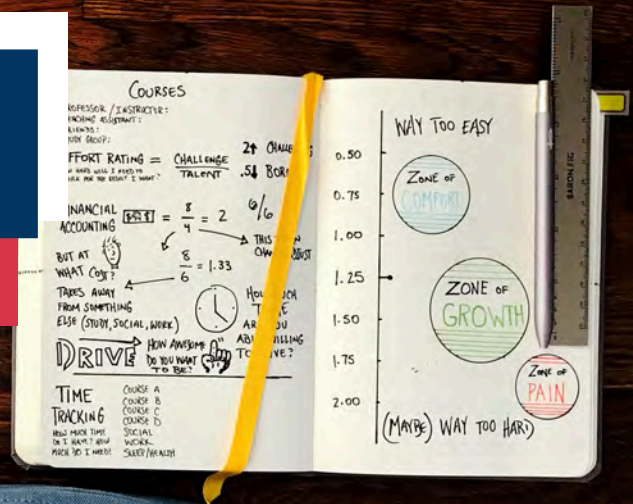 COURSES
PROFESSOR / INSTRUCTOR:
TEACHING ASSISTANT:
FRIENDS:
STUDY GROUP:
EFFORT RATING = CHALLENGE / TALENT
HOW HARD WILL I NEED TO
WORK FOR THE RESULT I WANT?
2↑
.5↓
FINANCIAL
ACCOUNTING
= 8/4 = 2
6/6
THIS
BUT AT
WHAT COST?
8/6 = 1.33
TAKES AWAY
FROM SOMETHING
ELSE (STUDY, SOCIAL, WORK)
DRIVE
HOW AWESOME
DO YOU WANT
TO BE?
TIME
TRACKING
HOW MUCH TIME
DO I HAVE? HOW
MUCH DO I NEED?
COURSE A
COURSE B
COURSE C
COURSE D
SOCIAL
WORK
SLEEP/HEALTH
WAY TOO EASY
0.50
0.75
1.00
1.25
1.50
1.75
2.00
ZONE OF
COMFORT
ZONE OF
GROWTH
ZONE OF
PAIN
(MAYBE) WAY TOO HARD
BARON FIG